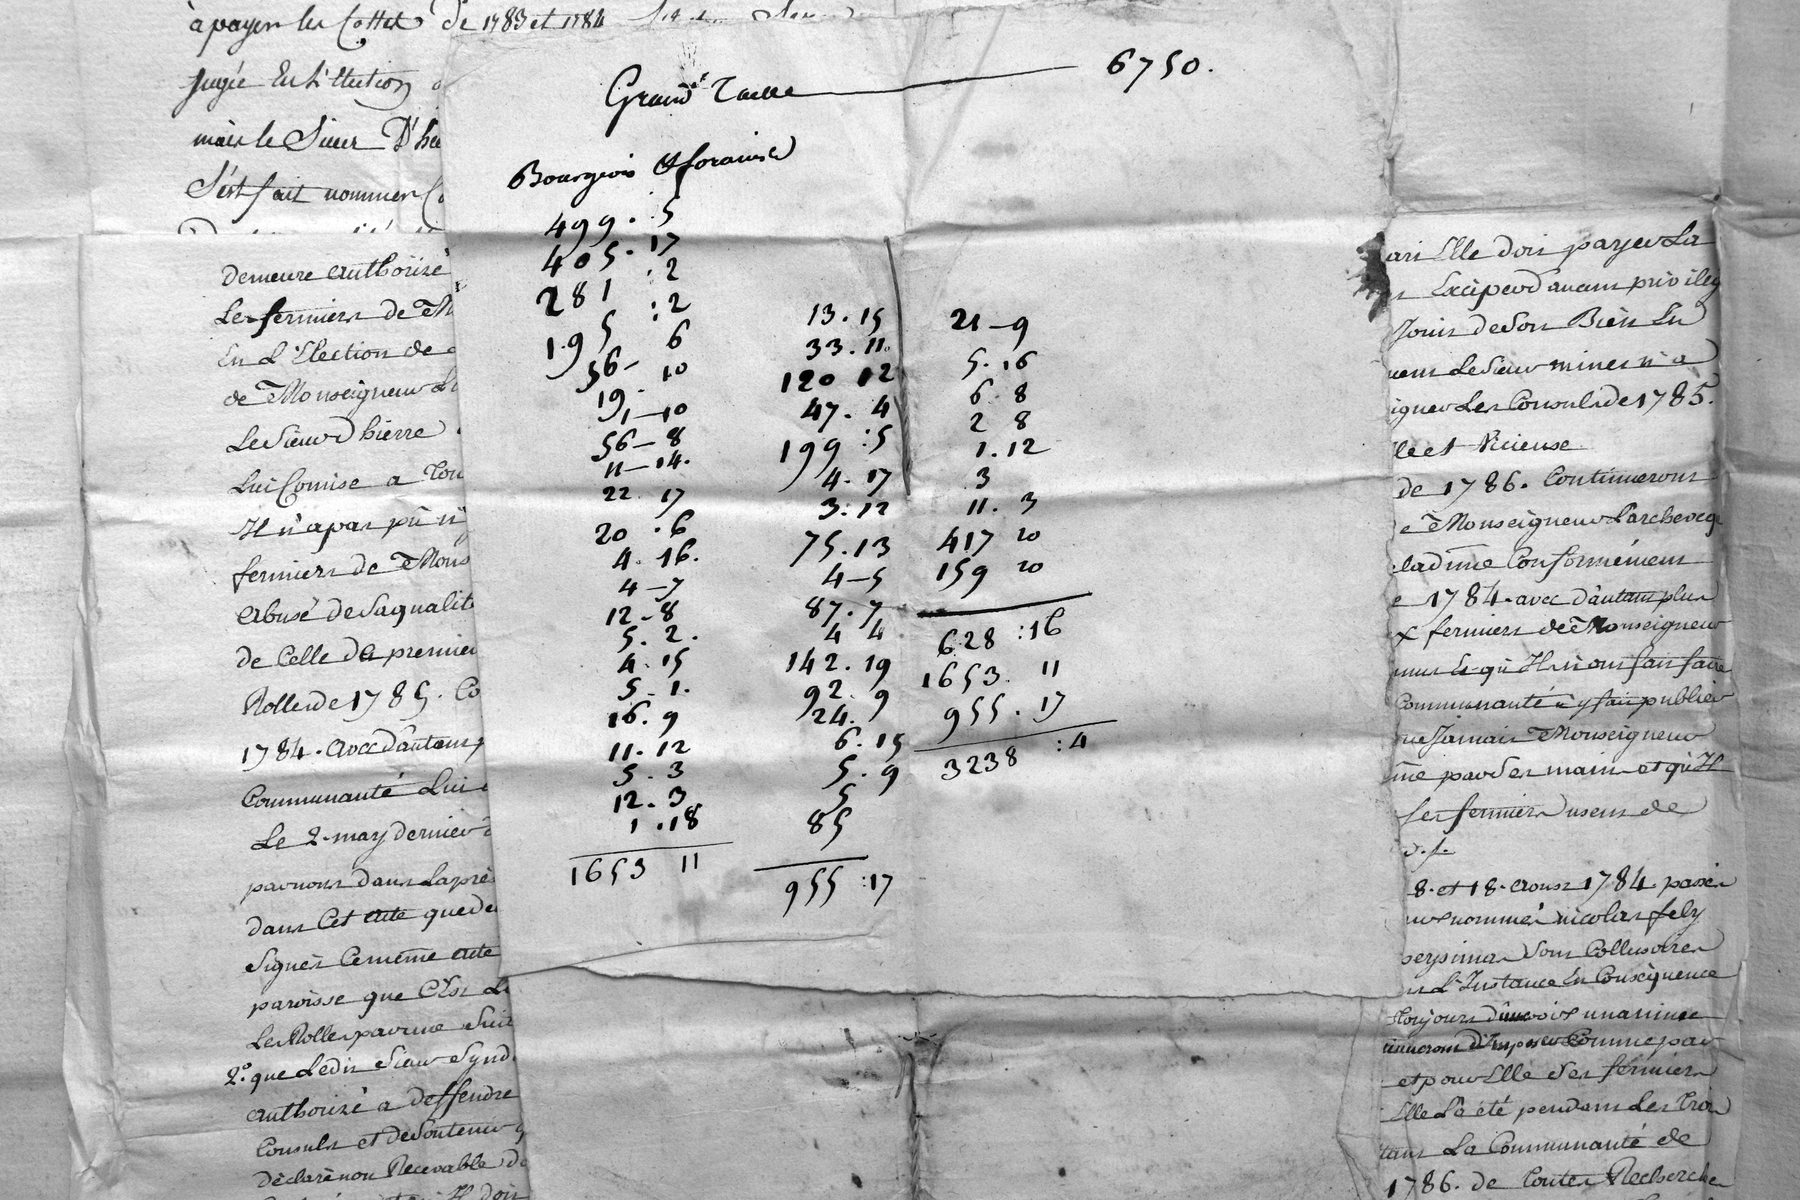 à payer les Cottes de 1783 et 1784
jugée En L'Election
mais le Sieur D'hie
s'est fait nommer Co
Grand Taille 6750.
Bourgeois & forains
499. :5
405. 17
281 :2
195 :2
56- 6
19. 10
91-10
56-8
11-14.
22. 17
20 :6
4. 16.
4-7
12-8
5. 2.
4. 15
5. 1.
16. 9
11. 12
5. 3
12. 3
1. 18
1653 11
13. 15
33. 11.
120 12
47. 4
199 :5
4. 17
3. 12
75. 13
4-5
87. 7
4 4
142. 19
92. 9
24.
6. 15
5. 9
5
85
955 :17
21-9
5. 16
6. 8
2 8
1. 12
3
11. 3
417 10
159 10
628 :16
1653. 11
955. 17
3238 :4
demeure authorisé
Les fermiers de M
En L'Election de
de Monseigneur L
Le Sieur D hierre
Lui Comise a
Il n'a pas pû
fermiers de Mons
abusé de sa qualit
de Celle de premier
Rolles de 1785. Co
1784. avec d'autant p
Communauté Lui
Le 2. may dernier
parnous dans La pré
dans Cet acte que de
signés Ce même acte
paroisse que C'est L
Les Rolles par une Suit
2.° que Ledit Sieur Synd
authorisé a deffendre
Consuls et de soutenir q
déclaré non Recevable d
ari Elle doit payer La
Exciper d'aucun privileg
Jouir de Son Bien En
Le Sieur miner n'a
igner Les Consuls de 1785.
lle et Vicieuse
de 1786. Continueront
e Monseigneur L'archeveq
ladime Conformément
e 1784. avec d'autant plus
x fermiers de Monseigneur
Communauté a y fait publier
ne Jamais Monseigneur
me par Ses mains et qu'Il
Les fermiers usent de
8. et 18. aoust 1784 passés
nommé nicolas fely
Sont Collusoires
L'Instance En Conséquence
toujours d'une voix unanime
tinueront d'Imposer Comme par
et pour Elle Ses fermiers
Elle L'a été pendant Les Trois
tant La Communauté de
1786. de Toutes Recherches